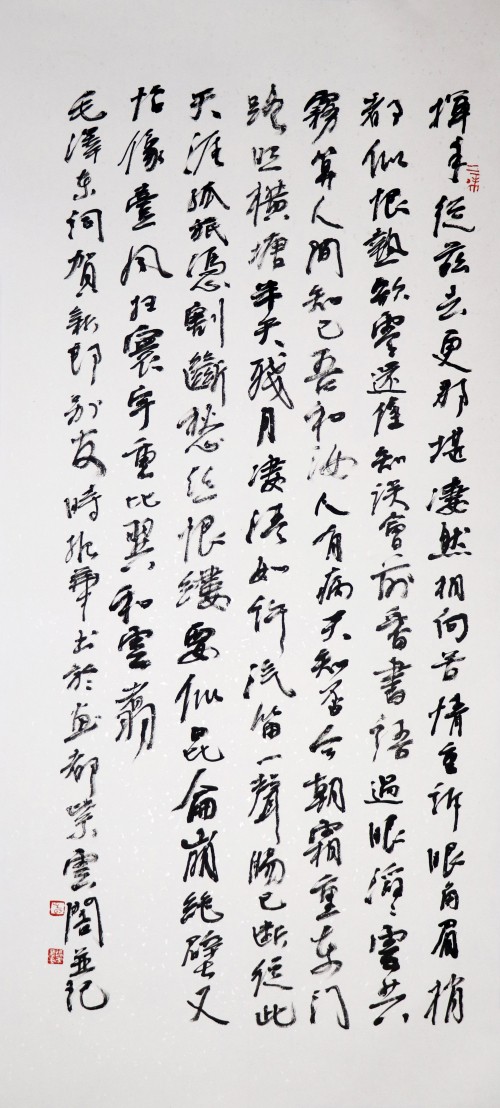 揮手從茲去更那堪凄然相向苦情重訴眼角眉梢
都似恨熱欲零還住知誤會前番書語過眼滔〻雲共
霧算人間知己吾和汝人有病天知否今朝霜重東門
路照橫塘半天殘月凄清如許汽笛一聲腸已斷從此
天涯孤旅憑割斷愁絲恨縷要似昆侖崩絕壁又
恰像臺風掃寰宇重比翼和雲翥
毛澤東詞賀新郎別友時書於都紫雲閣並記